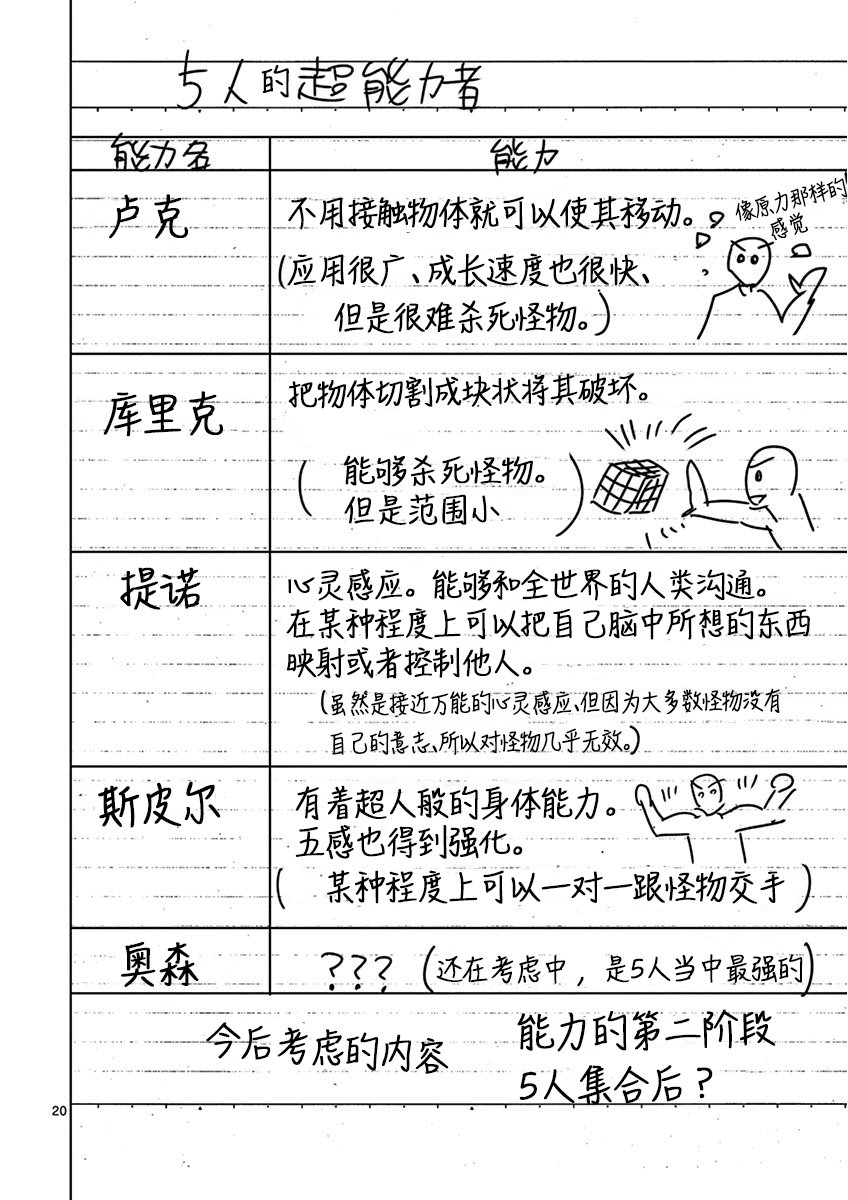 5人的超能力者
能力名 能力
卢克
不用接触物体就可以使其移动。
(应用很广、成长速度也很快、
但是很难杀死怪物。)
像原力那样的
感觉
库里克
把物体切割成块状将其破坏。
(能够杀死怪物。
但是范围小)
提诺
心灵感应。能够和全世界的人类沟通。
在某种程度上可以把自己脑中所想的东西
映射或者控制他人。
(虽然是接近万能的心灵感应、但因为大多数怪物没有
自己的意志、所以对怪物几乎无效。)
斯皮尔
有着超人般的身体能力。
五感也得到强化。
(某种程度上可以一对一跟怪物交手)
奥森
???(还在考虑中，是5人当中最强的)
今后考虑的内容
能力的第二阶段
5人集合后？
20